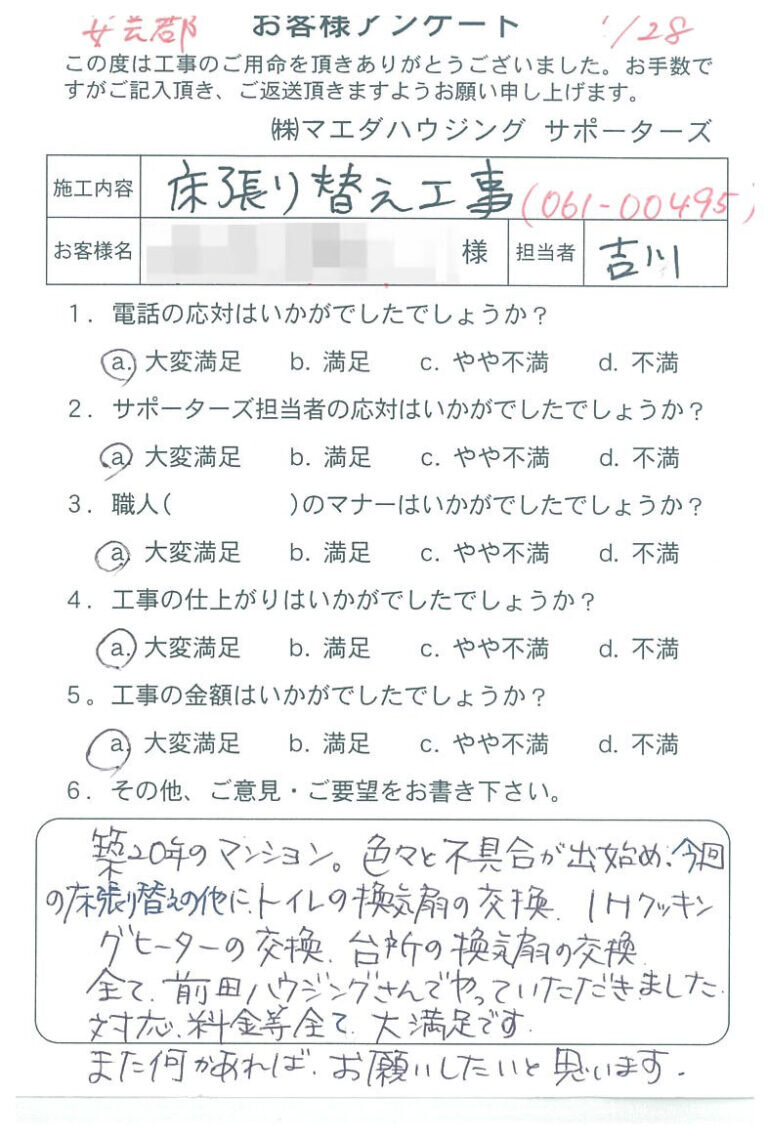 安芸郡 お客様アンケート 1/28
この度は工事のご用命を頂きありがとうございました。お手数で
すがご記入頂き、ご返送頂きますようお願い申し上げます。
㈱マエダハウジング サポーターズ
施工内容 床張り替え工事(061-00495)
お客様名 様 担当者 吉川
1. 電話の応対はいかがでしたでしょうか?
a. 大変満足 b. 満足 c. やや不満 d. 不満
2. サポーターズ担当者の応対はいかがでしたでしょうか?
a. 大変満足 b. 満足 c. やや不満 d. 不満
3. 職人( )のマナーはいかがでしたでしょうか?
a. 大変満足 b. 満足 c. やや不満 d. 不満
4. 工事の仕上がりはいかがでしたでしょうか?
a. 大変満足 b. 満足 c. やや不満 d. 不満
5。工事の金額はいかがでしたでしょうか?
a. 大変満足 b. 満足 c. やや不満 d. 不満
6. その他、ご意見・ご要望をお書き下さい。
築20年のマンション。色々と不具合が出始め、今回
の床張り替えの他に、トイレの換気扇の交換、IHクッキン
グヒーターの交換、台所の換気扇の交換、
全て、前田ハウジングさんでやっていただきました。
対応、料金等全て、大満足です。
また何かあれば、お願いしたいと思います。